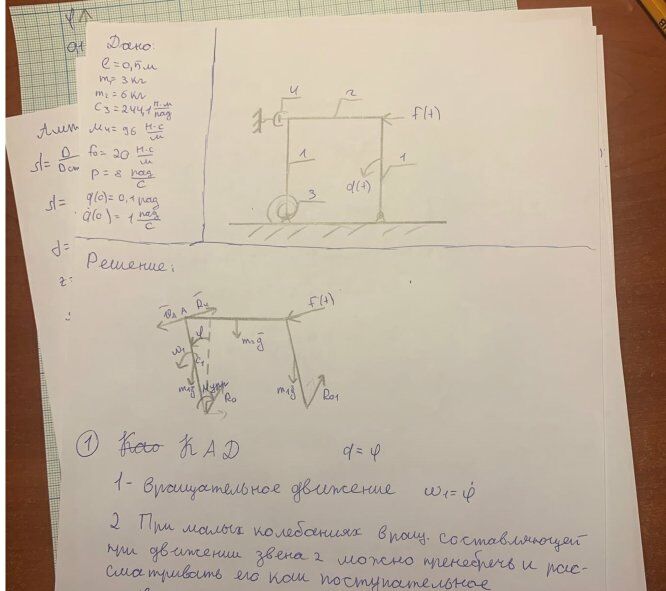 Дано:
ℓ = 0,5 м
m₁ = 3 кг
m₂ = 6 кг
C₃ = 244,1 н·м/рад
M₄ = 96 н·с/м
f₀ = 20 н·с/м
p = 8 рад/с
q(0) = 0,1 рад
q̇(0) = 1 рад/с
4
2
F(t)
1
1
q(t)
3
Решение:
F(t)
A
φ
m₂g
ω₁
C₁
m₁g
Mупр
R₀
m₁g
R₀₁
① КАД q = φ
1 - вращательное движение ω₁ = φ̇
2 При малых колебаниях вращ. составляющей
при движении звена 2 можно пренебречь и рас-
сматривать его как поступательное